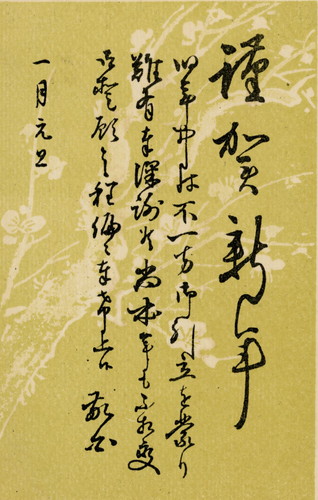 謹賀新年
旧年中は不一方御引立を蒙り
難有奉深謝候尚本年も不相変
御愛顧之程偏ニ奉希上候 敬白
一月元旦